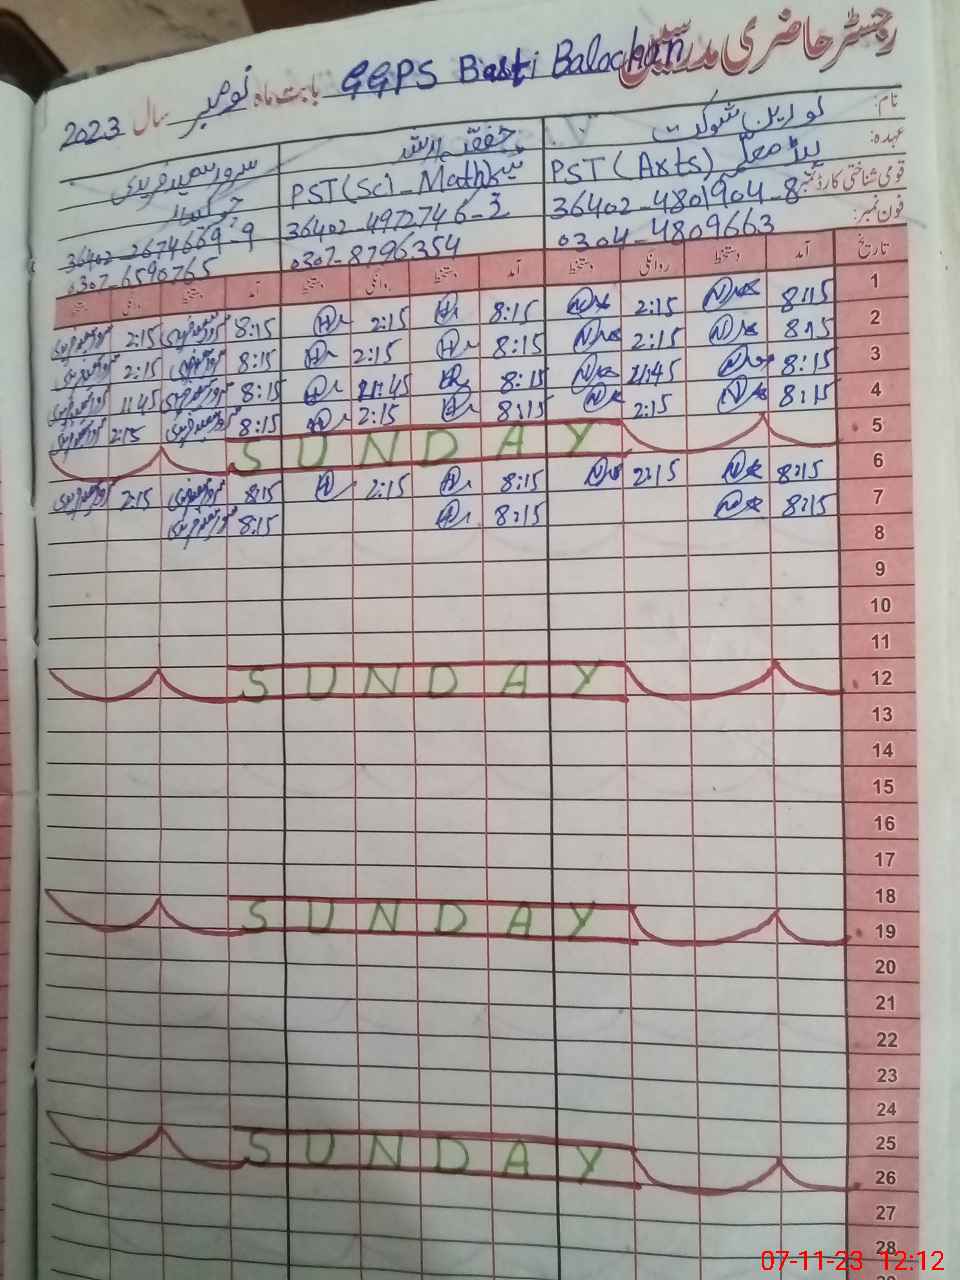 رجسٹر حاضری مدرسین
GGPS Basti Balochan بابت ماہ نومبر سال 2023
نام: نورین شوکت
عہدہ: PST (Arts) PST(Sc)-Math چوکیدار
قومی شناختی کارڈ نمبر: 36402-4801904-8 36402-4972746-2 36402-2674669-9
فون نمبر: 0304-4809663 0307-8796354 0307-6590765
تاریخ آمد دستخط روانگی دستخط آمد دستخط روانگی دستخط آمد دستخط روانگی دستخط
1 8:15 2:15 8:15 2:15 8:15 2:15
2 8:15 2:15 8:15 2:15 8:15 2:15
3 8:15 11:45 8:15 11:45 8:15 11:45
4 8:15 2:15 8:15 2:15 8:15 2:15
5 SUNDAY
6 8:15 2:15 8:15 2:15 8:15 2:15
7 8:15 8:15 8:15
8
9
10
11
12 SUNDAY
13
14
15
16
17
18
19 SUNDAY
20
21
22
23
24
25
26 SUNDAY
27
28
07-11-23 12:12